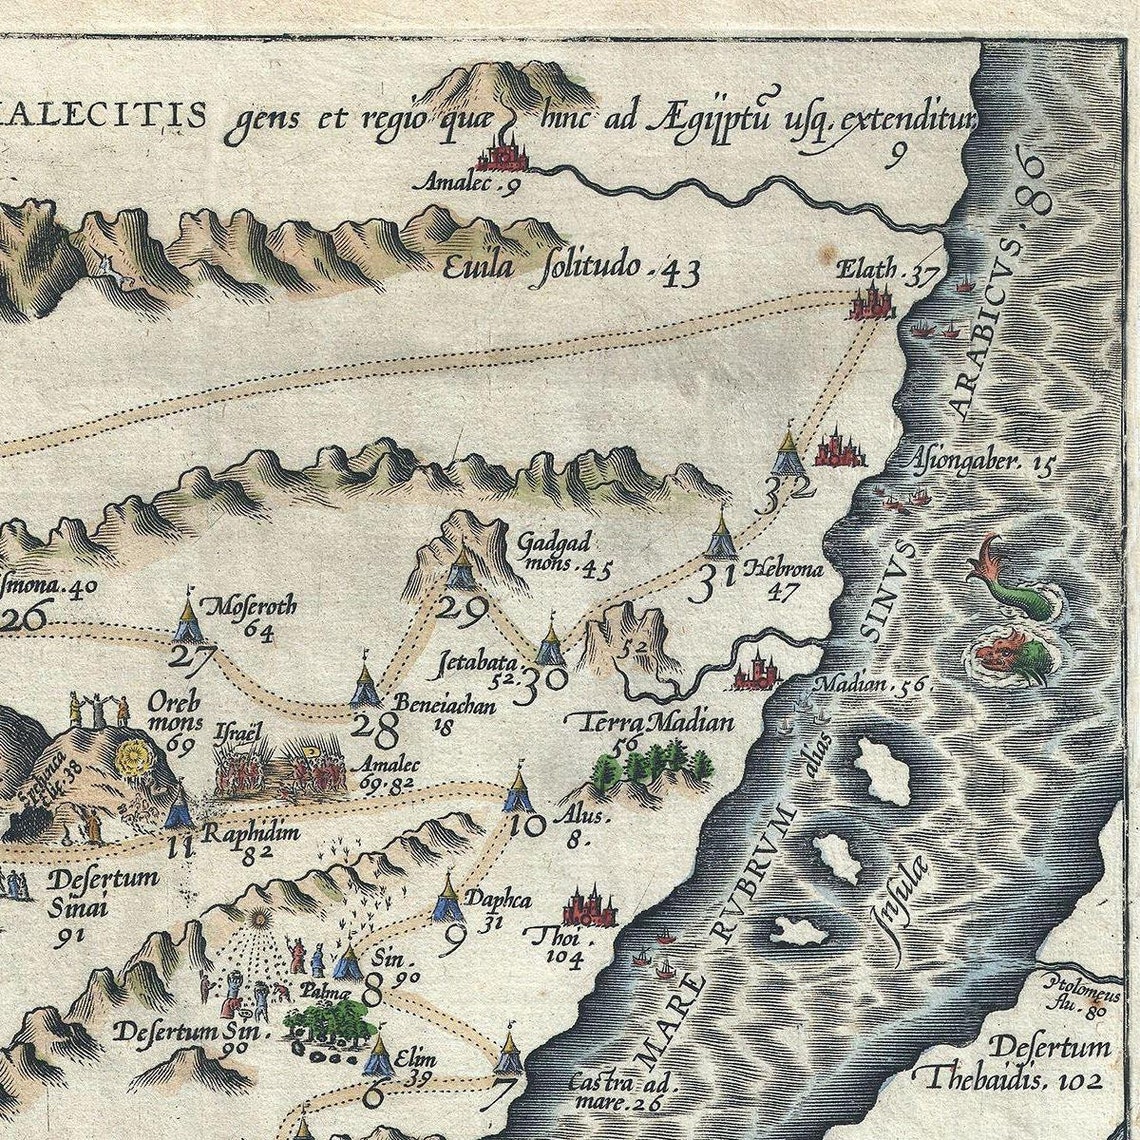 ALECITIS gens et regio quæ hinc ad Ægijptũ usq. extenditur
9
Amalec . 9
Euila solitudo . 43
Elath . 37
SINVS ARABICVS . 86
32
Asiongaber. 15
Gadgad
mons . 45
29
31
Hebrona
47
smona . 40
26
Moseroth
64
27
52
Jetabata .
52.
30
Beneiachan
18
28
Madian . 56 .
Terra Madian
56
Oreb
mons
69
Israël
Amalec
69.82
38
10
Alus .
8 .
Raphidim
82
11
Desertum
Sinai
91
alias
MARE RVBRVM
Insulæ
Daphca
31
9
Thoi .
104
Sin .
90
8
Palmæ
Desertum Sin .
90
Elim
39
6
7
Castra ad .
mare . 26
Ptolomęus
flu . 80
Desertum
Thebaidis . 102